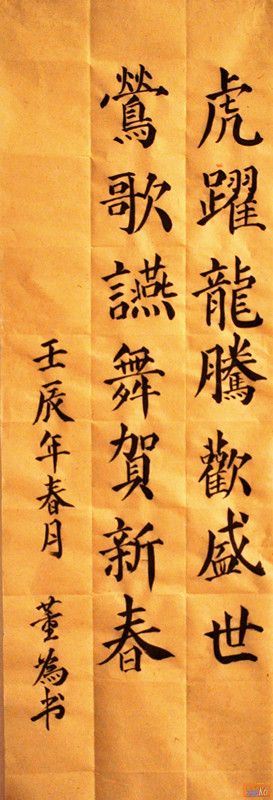 虎躍龍騰歡盛世
鶯歌讌舞賀新春
壬辰年春月 董為书